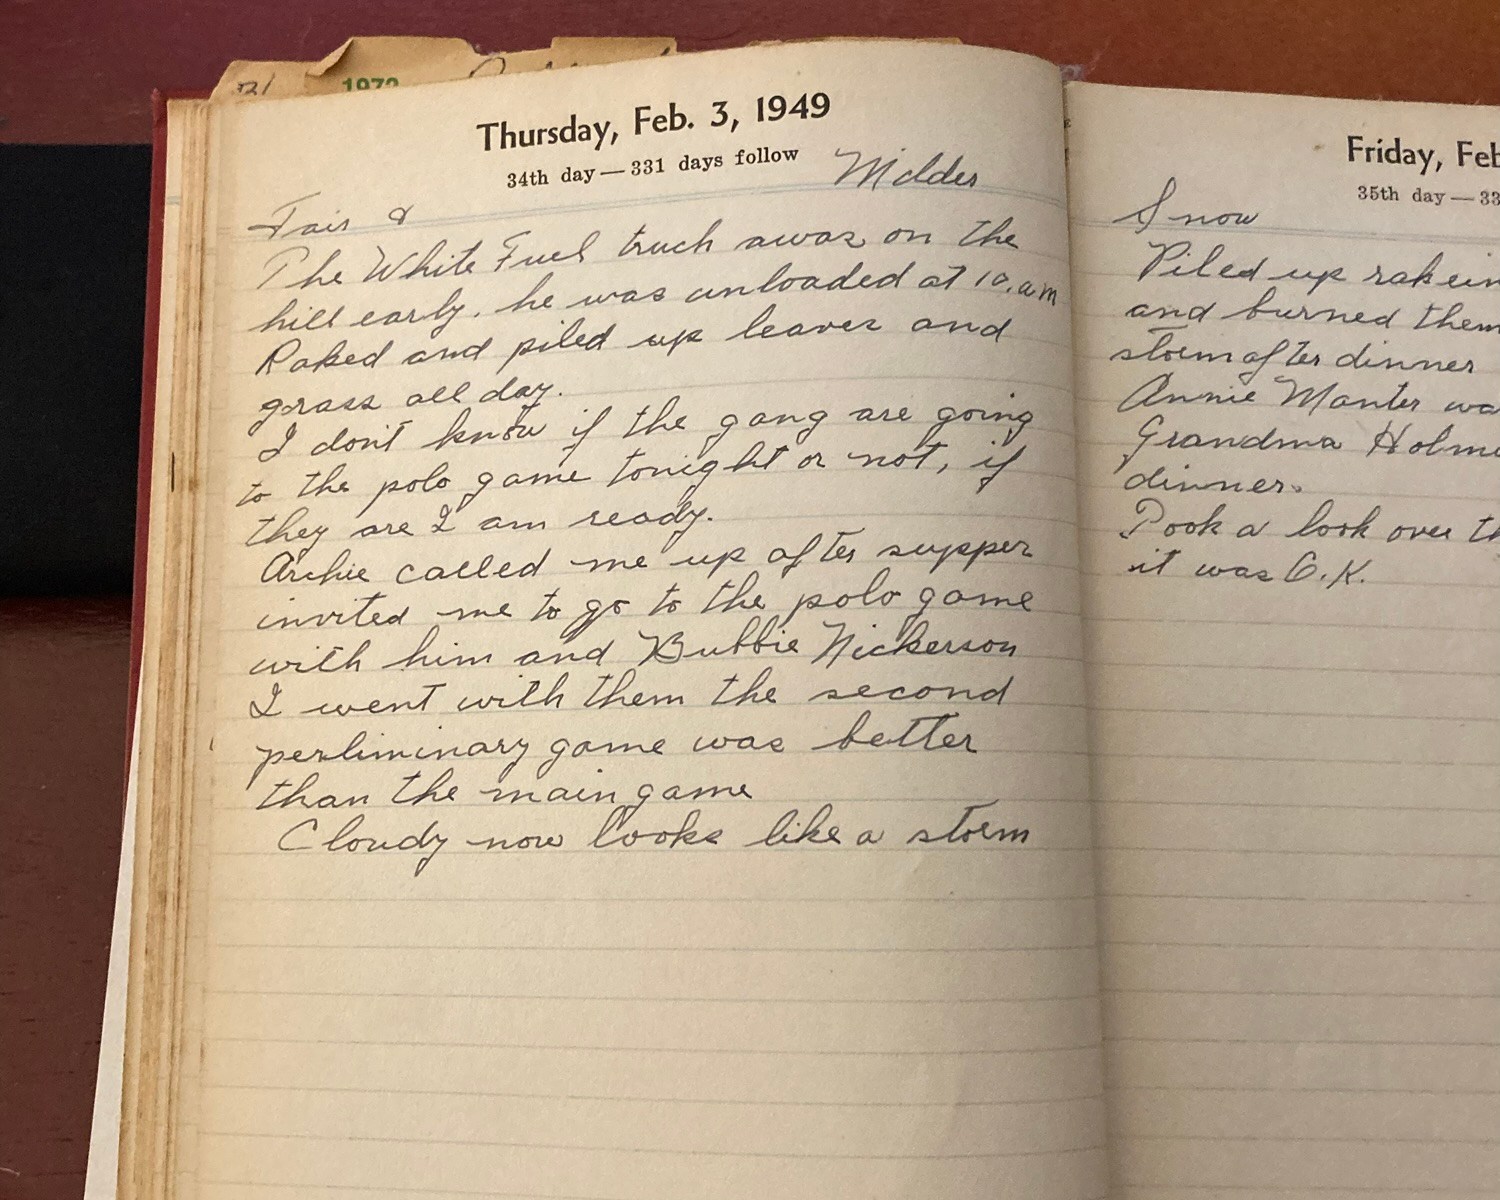 1972
Thursday, Feb. 3, 1949
34th day—331 days follow
Fair & Milder
The White Fuel truck awas on the
hill early. he was unloaded at 10. a m
Raked and piled up leaves and
grass all day.
I don't know if the gang are going
to the polo game tonight or not, if
they are I am ready.
Archie called me up after supper
invited me to go to the polo game
with him and Bubbie Nickerson
I went with them the second
perliminary game was better
than the main game
Cloudy now looks like a storm
Friday, Feb
35th day—33
Snow
Piled up rakein
and burned them
storm after dinner
Annie Manter wa
Grandma Holme
dinner.
Took a look over th
it was O.K.